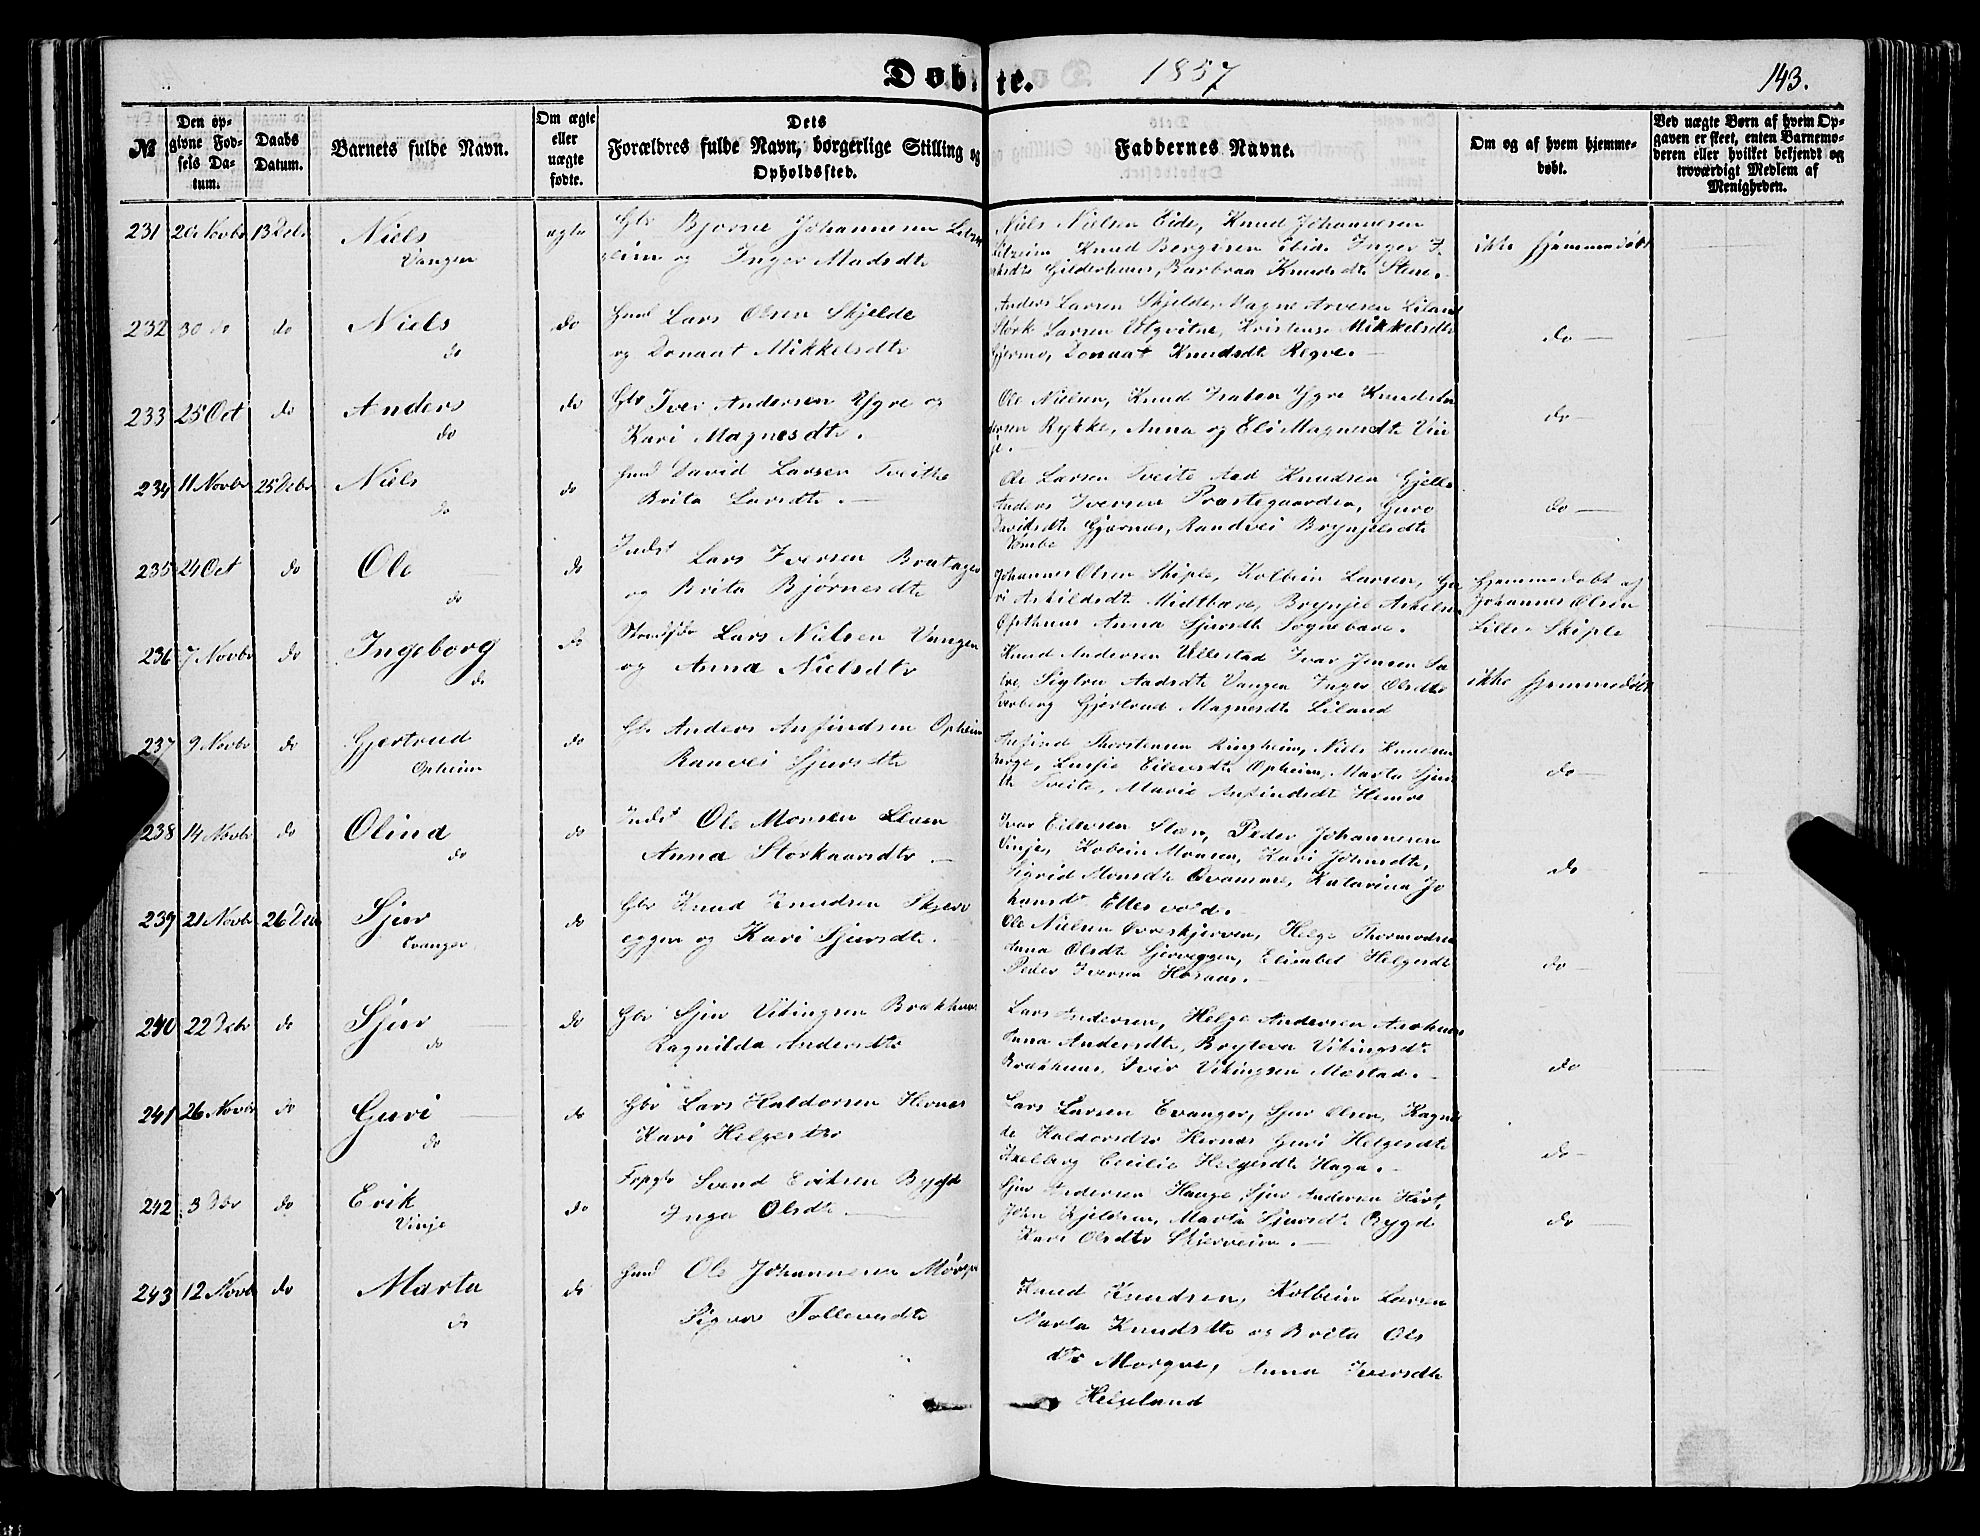 Døbte. 1857 143.
№
Den opgivne Fødsels Datum.
Daabs Datum.
Barnets fulde Navn.
Om ægte eller uægte fødte.
Dets Forældres fulde Navn, borgerlige Stilling og Opholdssted.
Faddernes Navne.
Om og af hvem hjemmedøbt.
Ved uægte Børn af hvem Opgaven er skeet, enten Barnemoderen eller hvilket bekjendt og troværdigt Medlem af Menigheden.
231 Novbr 13 Debr Niels Vangen ægte Gbr Bjørne Johannesen
og Inger Madsdtr
Niels Nielsen Eide, Knud Johannesen
Knud Bergesen Inger
Gilderhuus, Barbraa Knudsdtr Stene.
ikke hjemmedøbt
232 30 do do Niels do do Huusmd Lars Olsen Skjelde
og Donaat Mikkelsdtr
Anders Larsen Skjelde, Magne Arvesen Liland
Størk Larsen Kristense Mikkelsdtr
Gjermo, Donaat Knudsdtr Regve.
do
233 25 Oct do Anders do do Gbr Iver Andersen Ygre og
Kari Magnesdtr.
Ole Nielsen, Knud Ygre Knud
Rykke, Anna og Eli Magnesdtr Vin
je.
do
234 11 Novbr 25 Debr Niels do do Huusmd David Larsen Tveite
Brita Larsdtr.
Ole Larsen Tveite Aad Knudsen Gjelle
Anders Iversen Præstegaarden, Guro
Davidsdtr Gjernes, Randvei Brynjelsdtr
do
235 24 Oct do Ole do do Inds Lars Iversen
og Brita Bjørnesdtr
Johannes Olsen Skiple, Kolbein Larsen,
Askildsdtr Midtbære, Brynjel
Opthuus Anna Sjursdtr Sognebære.
Hjemmedøbt af
Johannes Olsen
Lille Skiple
236 7 Novbr do Ingeborg do do Lars Nielsen Vangen
og Anna Nielsdtr
Knud Andersen Ullestad Ivar Jensen
Sigtru Aadsdtr Vangen Inger Olsdtr
Gjertrud Magnesdtr Liland
ikke hjemmedøbt
237 9 Novbr do Gjertrud Opheim do Gbr Anders Anfindsen Opheim
Ranvei Sjursdtr
Anfind Thorstensen Ringheim, Niels Knudsen
Eilevsdtr Opheim, Marta Sjurs
dtr Tveite, Marie Anfindsdtr Hemre
do
238 14 Novbr do Olina do do Inds Ole Monsen
Anna Storkaarsdtr
Ivar Eilevsen Peder Johannesen
Vinje, Kolbein Monsen, Kari Johnsdtr,
Sigrid Monsdtr Qvamme, Katarina Jo
hansdtr Ellesvold.
do
239 21 Novbr 26 Debr Sjur Evanger do Gbr Knud Knudsen Skjerv
eggen og Kari Sjursdtr.
Ole Nielsen Helge Thormodsen
Anna Olsdtr Elisabet Helgesdtr
Peder Iversen Horsaas.
do
240 22 Debr do Sjur do do Gbr Sjur Vikingsen Brækhuus
Ragnilda Andersdtr
Lars Andersen, Helge Andersen
Anna Andersdtr, Bryteva Vikingsdtr
Brækhuus, Iver Vikingsen Mæstad.
do
241 26 Novbr do Guri do do Gbr Lars Haldorsen Hernes
Kari Helgesdtr
Lars Larsen Evanger, Sjur Olsen, Ragnil
de Haldorsdtr Hernes Guri Helgesdtr
Cecilie Helgesdtr Haga.
do
242 3 Dbr do Erik Vinje do Svend Eriksen Bygd
Inga Olsdtr
Sjur Pedersen Hauge Sjur Andersen
John Kjeldsen, Marta Sjursdtr Bygd
Kari Olsdtr Skjerveim.
do
243 12 Novbr do Marta do do Huusmd Ole Johannesen
Tollevsdtr
Knud Knudsen, Kolbein Larsen
Marta Knudsdtr og Brita Ols
dtr Mørque, Anna Iversdtr
Helgeland